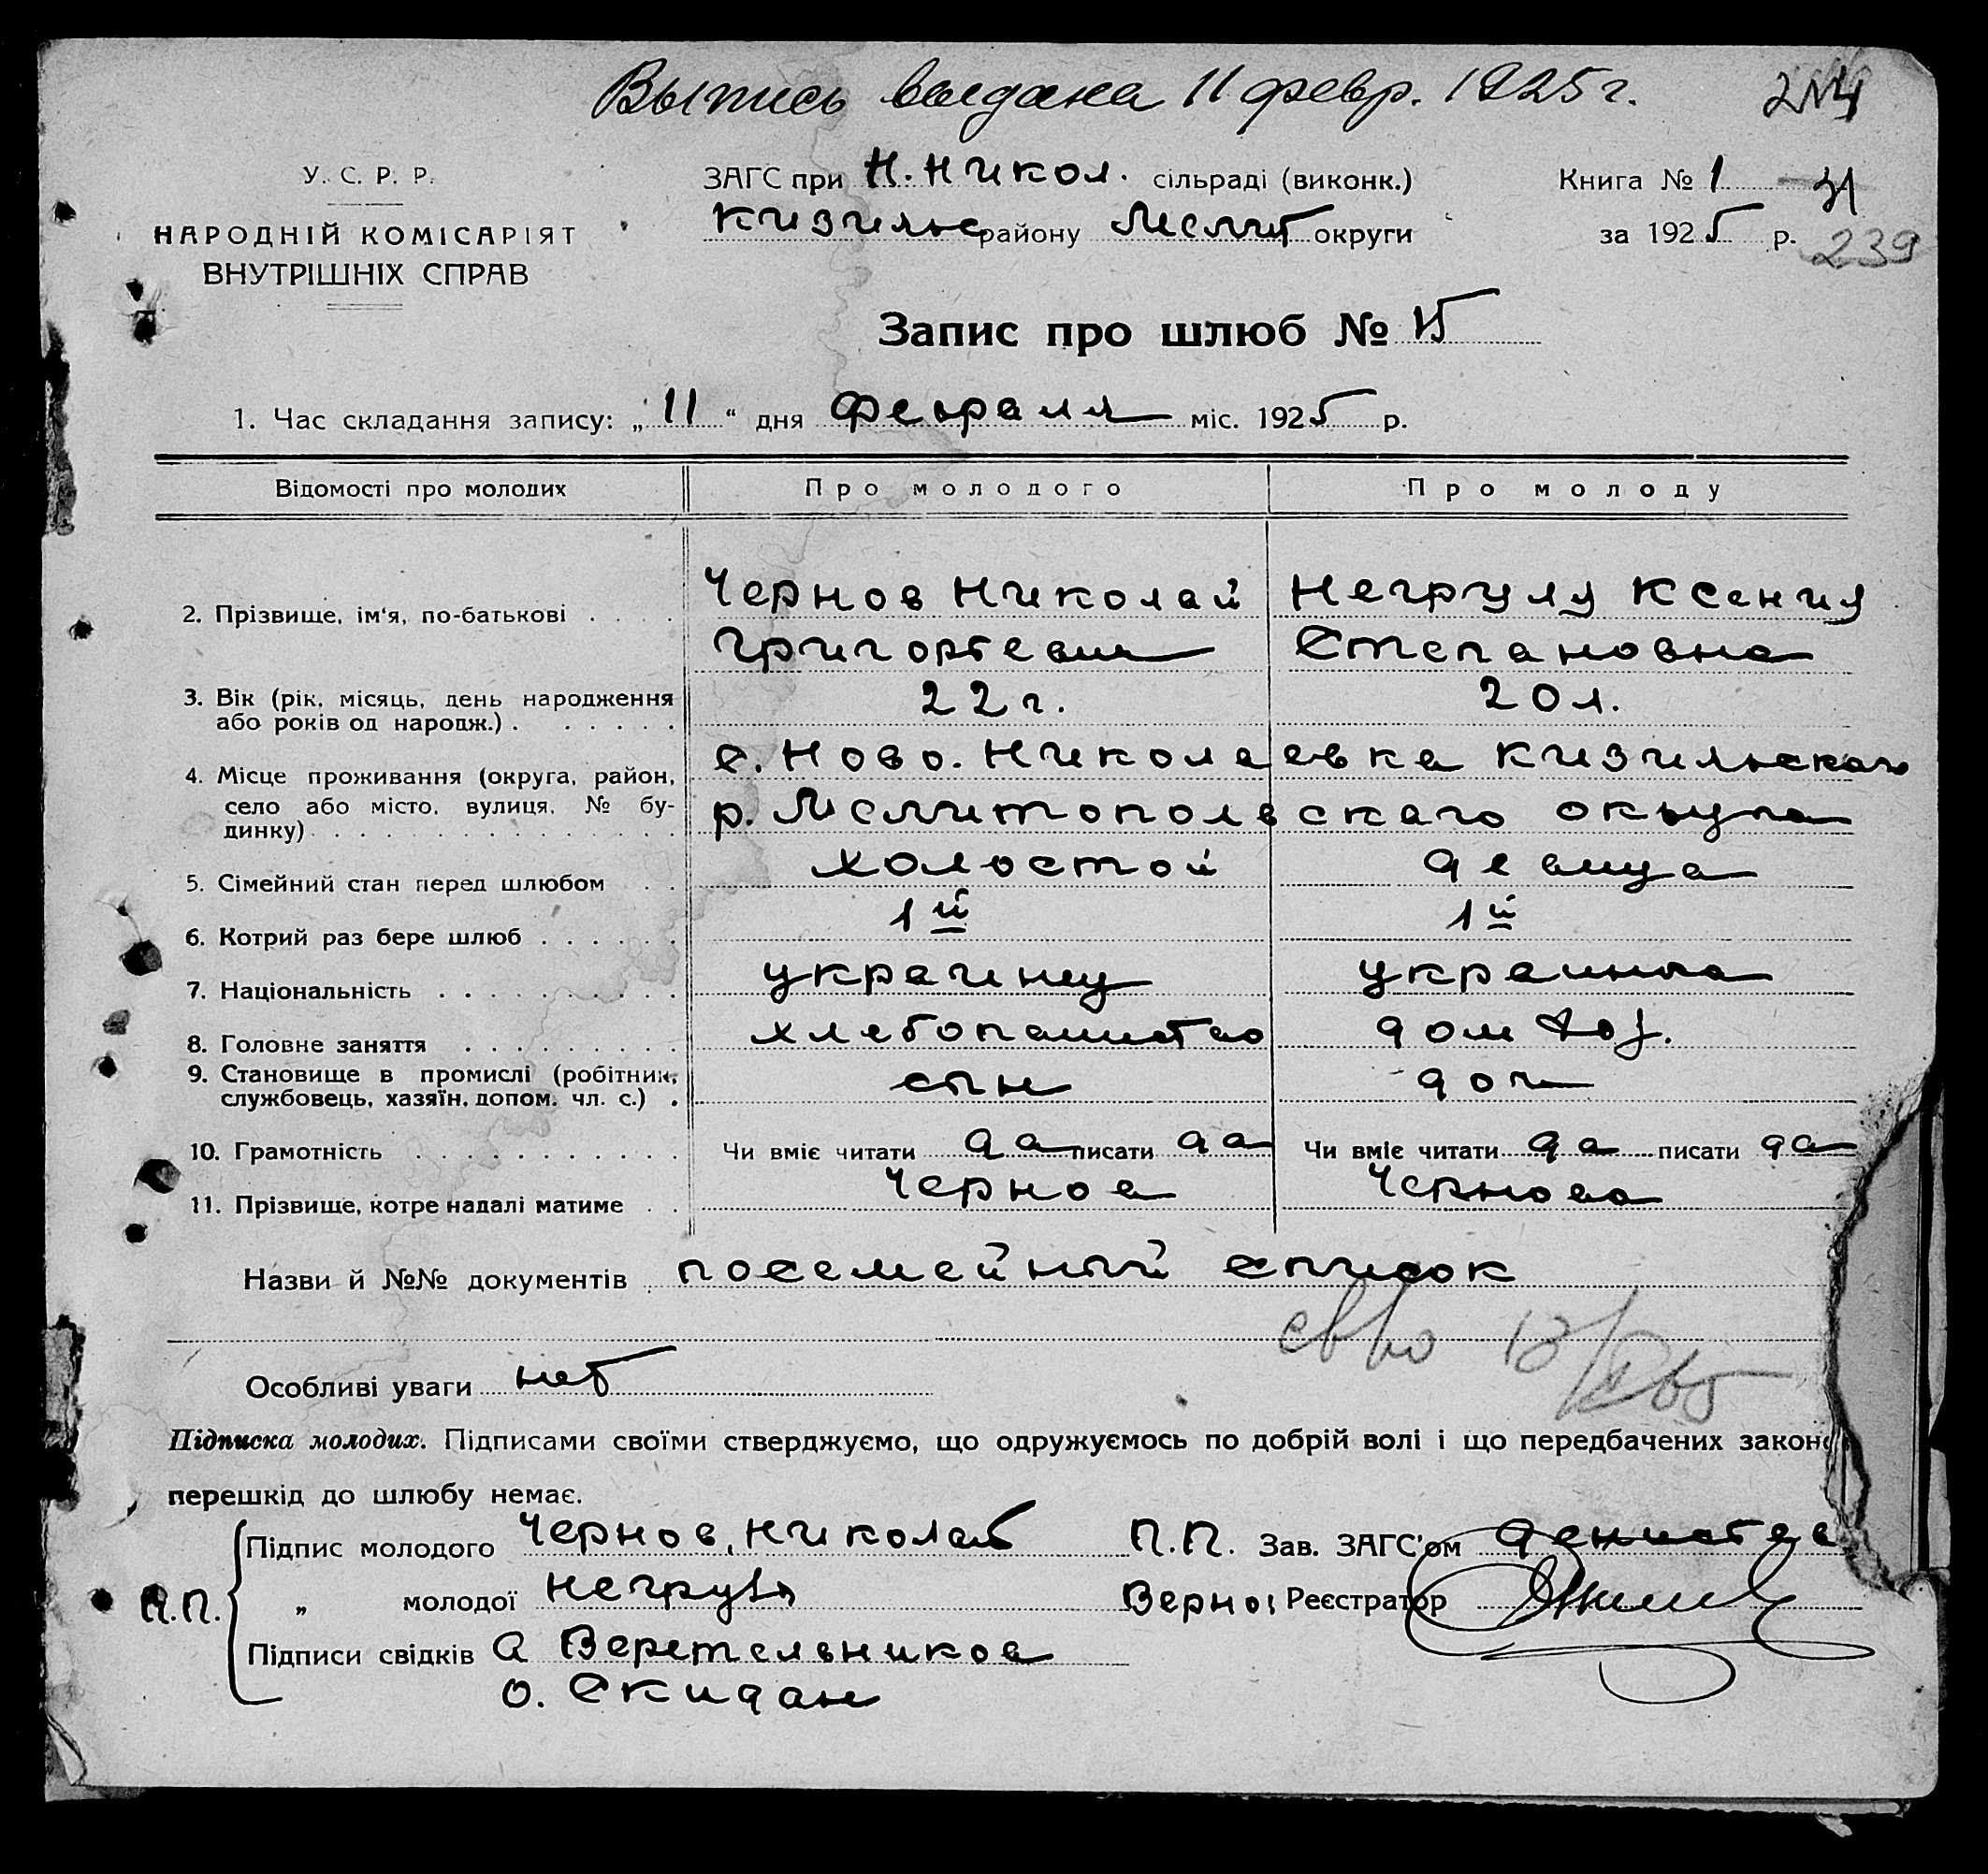 Выпись выдана 11 февр. 1925 г.
У. С. Р. Р.
НАРОДНІЙ КОМІСАРІЯТ
ВНУТРІШНІХ СПРАВ
ЗАГС при Н. Никол. сільраді (виконк.)
Кизильс району Мелит округи
Книга № 1
31
за 1925 р.
239
Запис про шлюб № 15
1. Час складання запису: „11“ дня февраля міс. 1925 р.
Відомості про молодих Про молодого Про молоду
2. Прізвище, ім'я, по-батькові Чернов Николай Негруля Ксения
Григорьевич Степановна
3. Вік (рік, місяць, день народження 22 г. 20 л.
або років од народж.)
4. Місце проживання (округа, район, с. Ново-Николаевка Кизильскаго
село або місто, вулиця, № бу- р. Мелитопольскаго округа
динку)
5. Сімейний стан перед шлюбом холостой девица
6. Котрий раз бере шлюб 1й 1й
7. Національність украинец украинка
8. Головне заняття хлебопашество дом хоз.
9. Становище в промислі (робітник, сын доч
службовець, хазяїн, допом. чл. с.)
10. Грамотність Чи вміє читати да писати да Чи вміє читати да писати да
11. Прізвище, котре надалі матиме Чернов Чернова
Назви й №№ документів посемейный список
Особливі уваги нет
Підписка молодих. Підписами своїми стверджуємо, що одружуємось по добрій волі і що передбачених законо
перешкід до шлюбу немає.
Підпис молодого Чернов, Николай П.П. Зав. ЗАГС'ом
П.П. „ молодої Негруля Верно: Реєстратор
Підписи свідків А Веретельников
О. Скидан